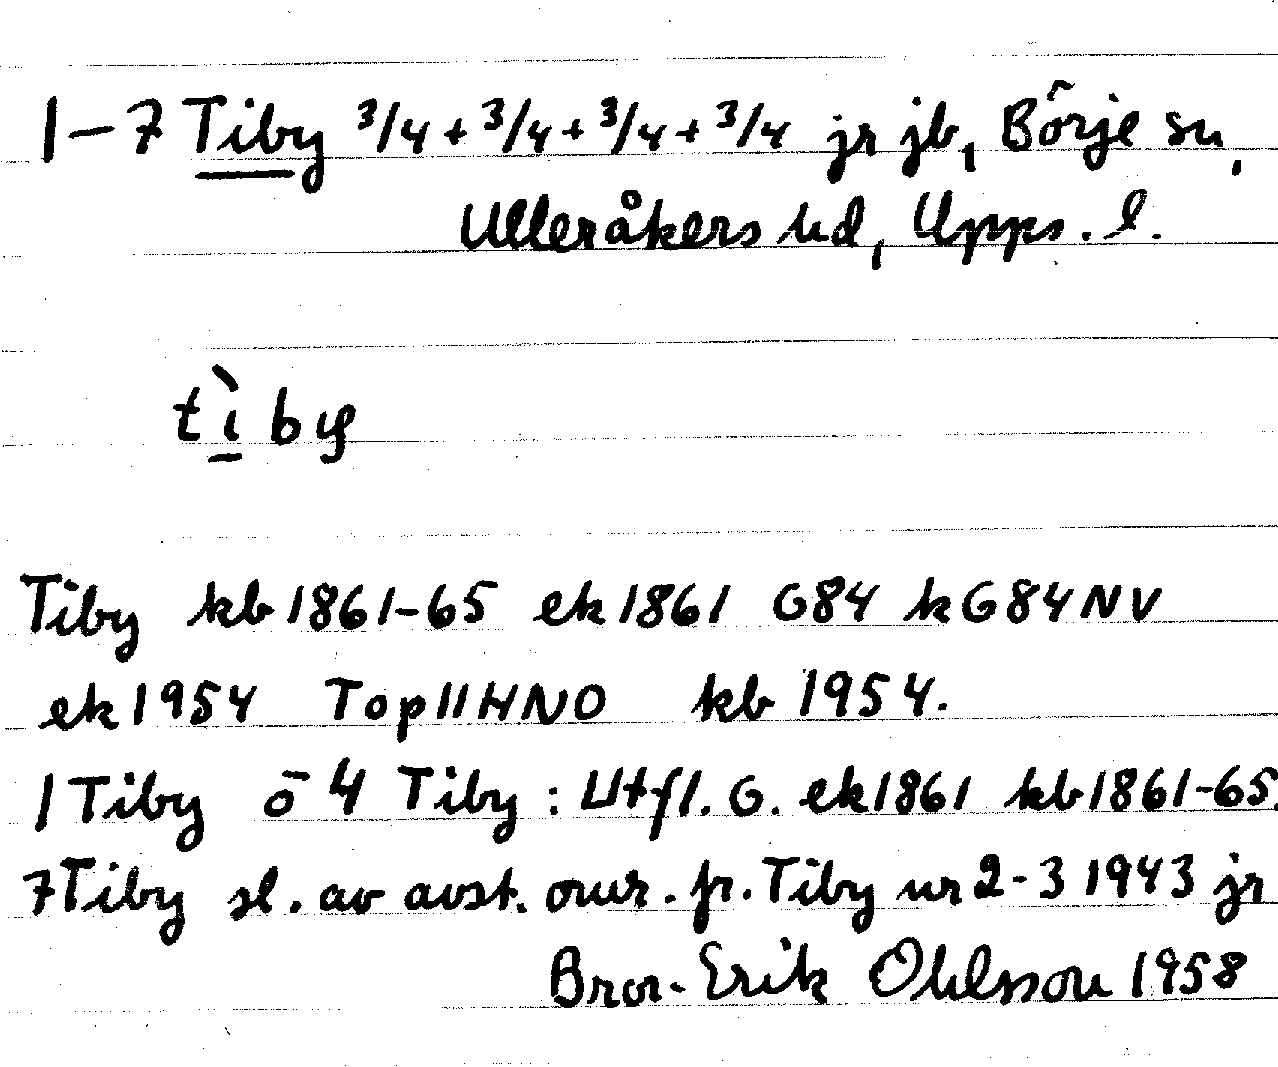 1-7 Tiby 3/4+3/4+3/4+3/4 jr jb, Börje sn,
Ulleråkers hd, Upps. l.
tìby
Tiby kb 1861-65 ek 1861 G84 kG84NV
ek 1954 Top 11HNO kb 1954.
1 Tiby o 4 Tiby : Utfl. G. ek 1861 kb 1861-65.
7 Tiby sl. av avst. omr. fr. Tiby nr 2-3 1943 jr
Bror-Erik Ohlsson 1958